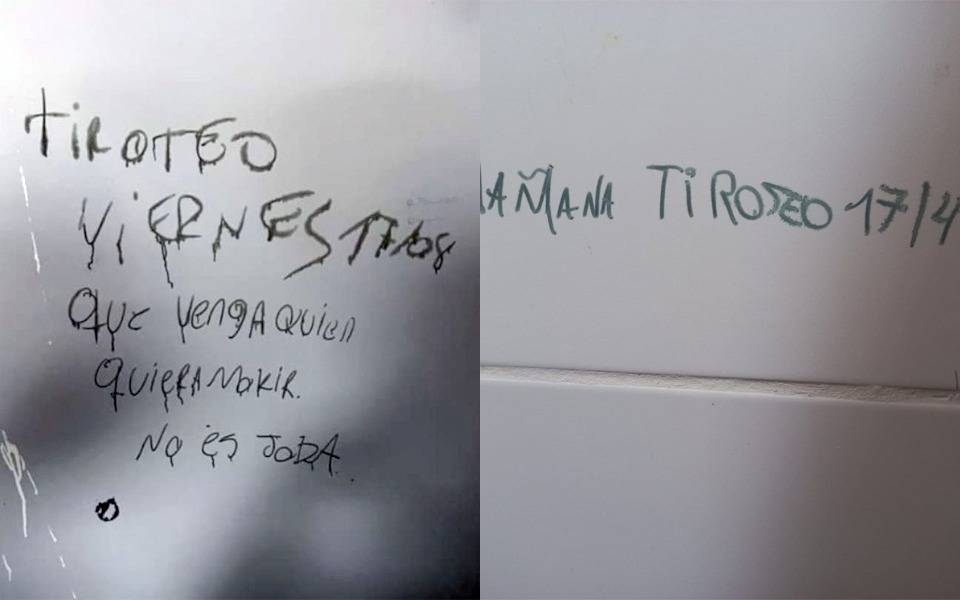 TIROTEO
VIERNES 17/08
QUE VENGA QUIEN
QUIERA MORIR.
NO ES JODA.
MAÑANA TIROTEO 17/4